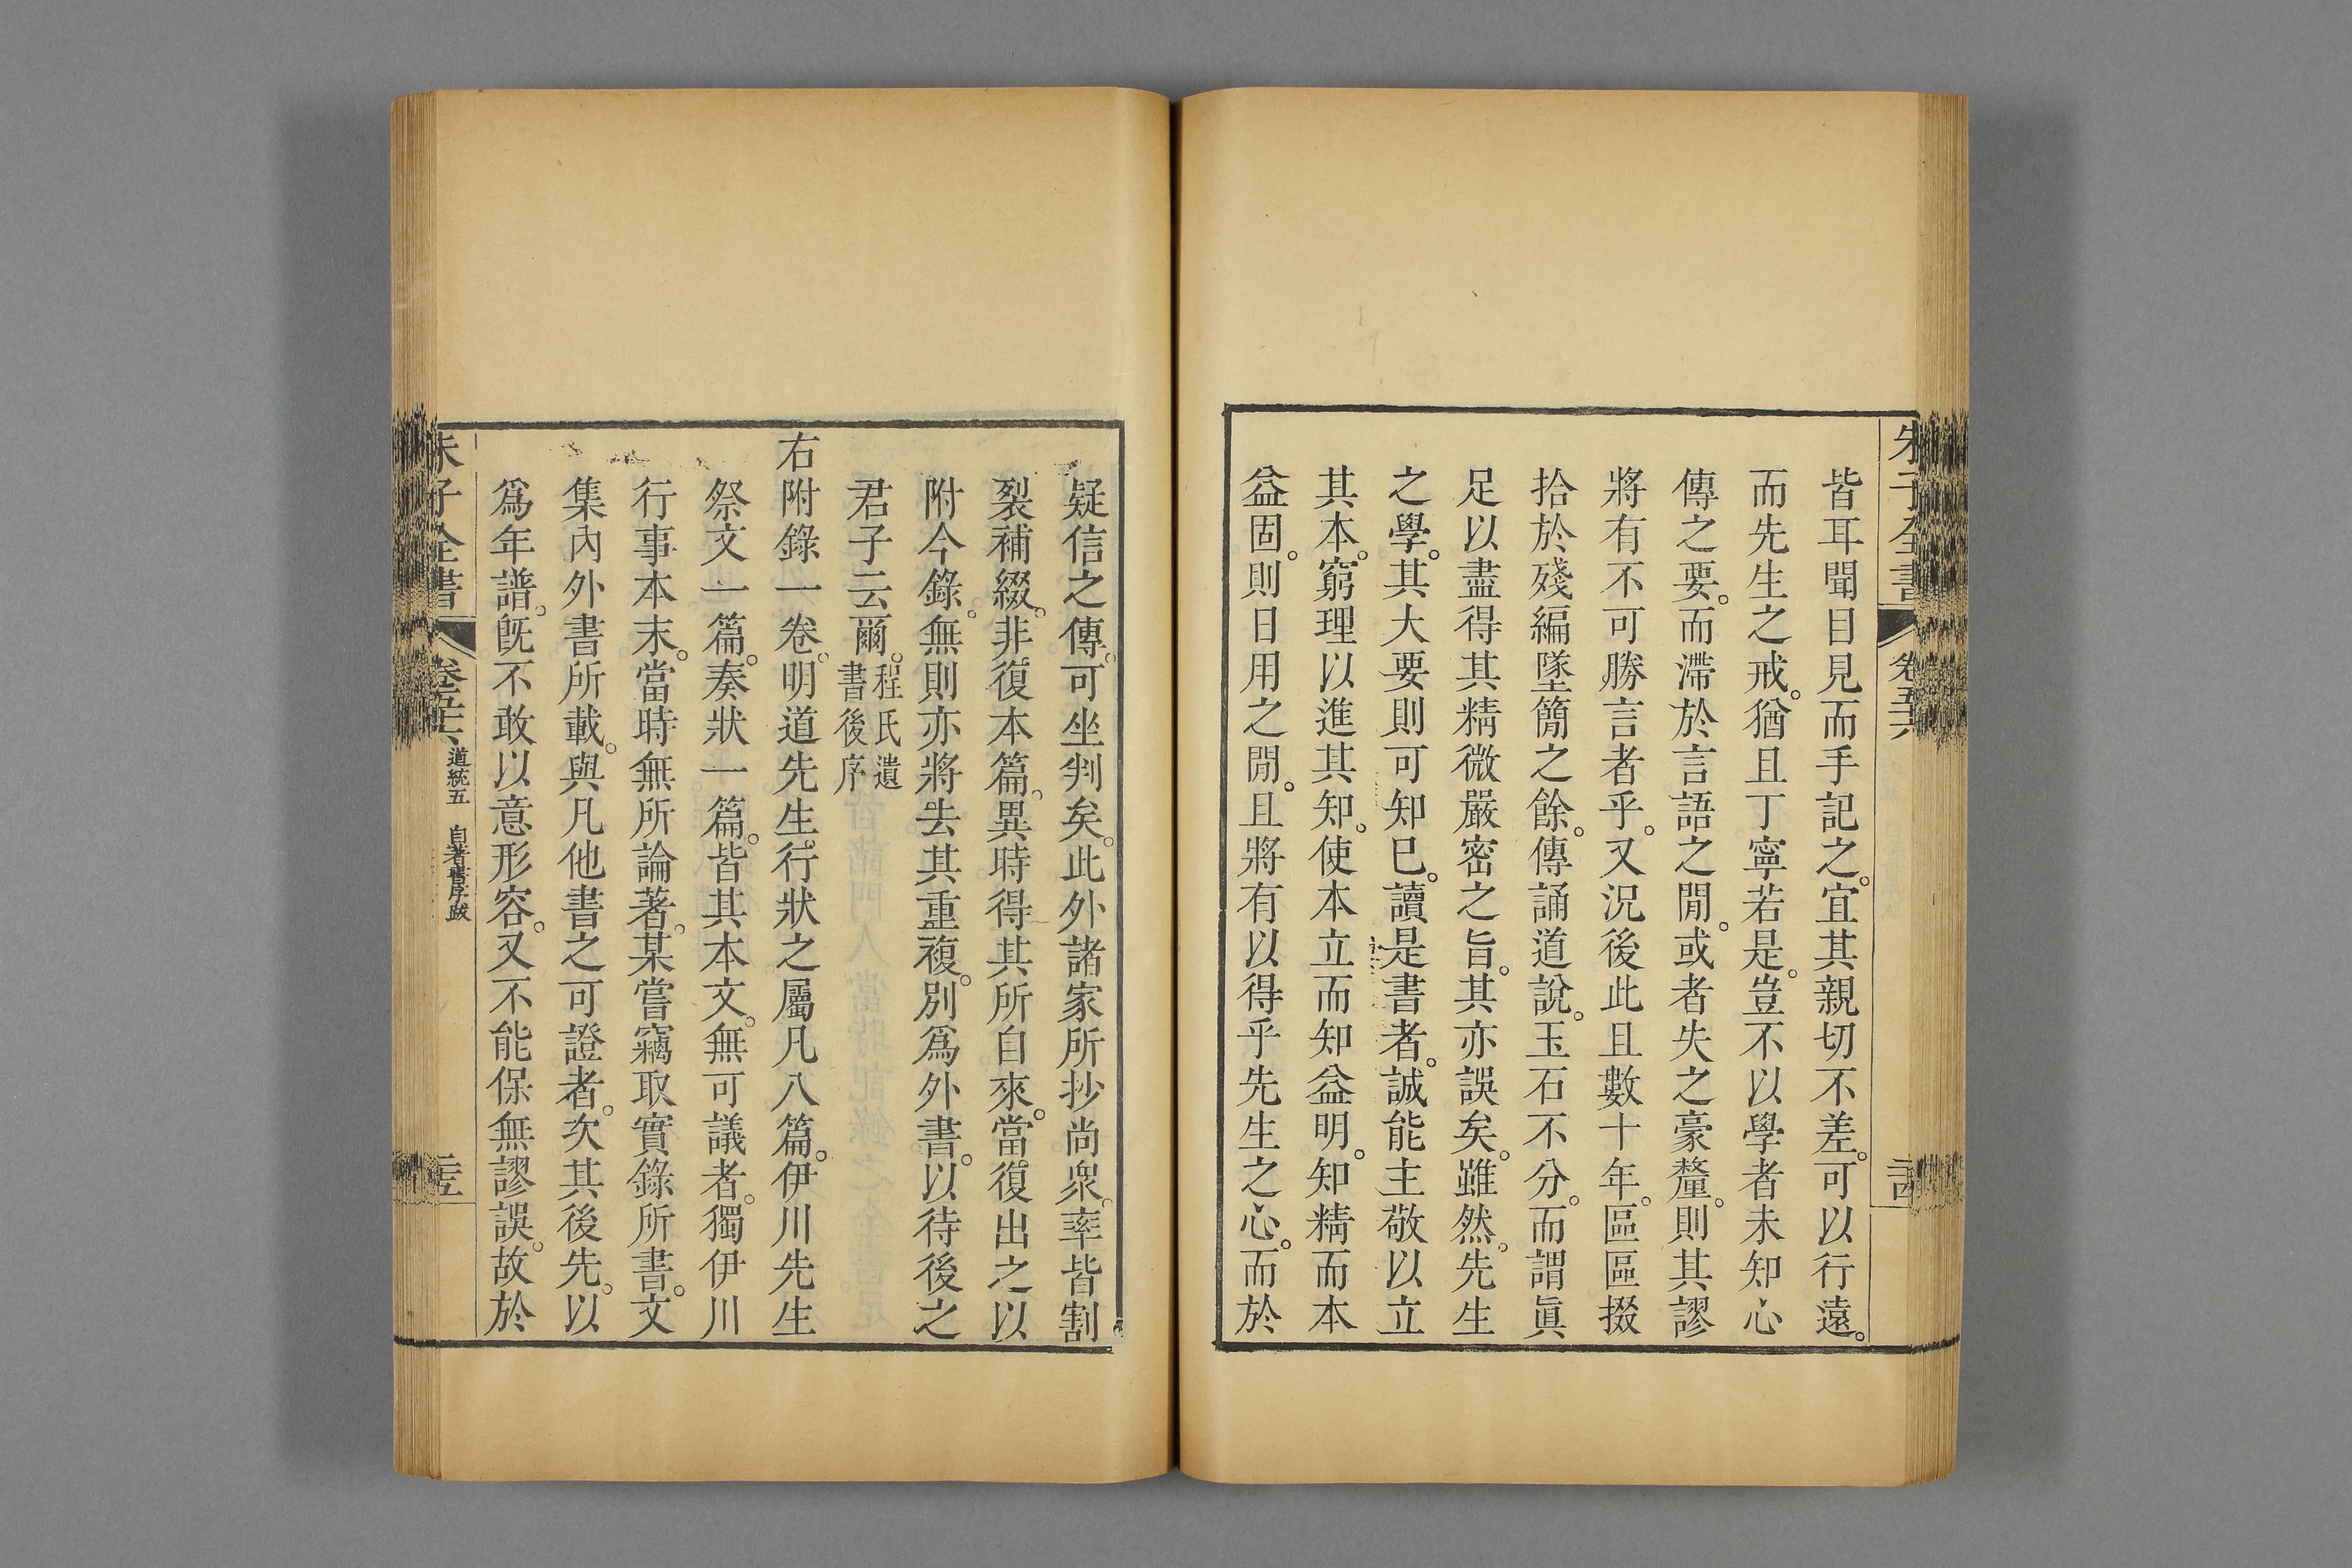 朱子全書 卷五十六 二十四
皆耳聞目見而手記之。宜其親切不差。可以行遠。
而先生之戒。猶且丁寧若是。豈不以學者未知心
傳之要。而滯於言語之閒。或者失之豪釐。則其謬
將有不可勝言者乎。又況後此且數十年。區區掇
拾於殘編墜簡之餘。傳誦道說。玉石不分。而謂眞
足以盡得其精微嚴密之旨。其亦誤矣。雖然。先生
之學。其大要則可知已。讀是書者。誠能主敬以立
其本。窮理以進其知。使本立而知益明。知精而本
益固。則日用之閒。且將有以得乎先生之心。而於
疑信之傳。可坐判矣。此外諸家所抄尚衆。率皆割
裂補綴。非復本篇。異時得其所自來。當復出之以
附今錄。無則亦將去其重複。別爲外書。以待後之
君子云爾。程氏遺書後序
右附錄一卷。明道先生行狀之屬凡八篇。伊川先生
祭文一篇。奏狀一篇。皆其本文。無可議者。獨伊川
行事本末。當時無所論著。某嘗竊取實錄所書。文
集內外書所載。與凡他書之可證者。次其後先。以
爲年譜。旣不敢以意形容。又不能保無謬誤。故於
朱子全書 卷五十六 道統五 自著書序跋 二十五